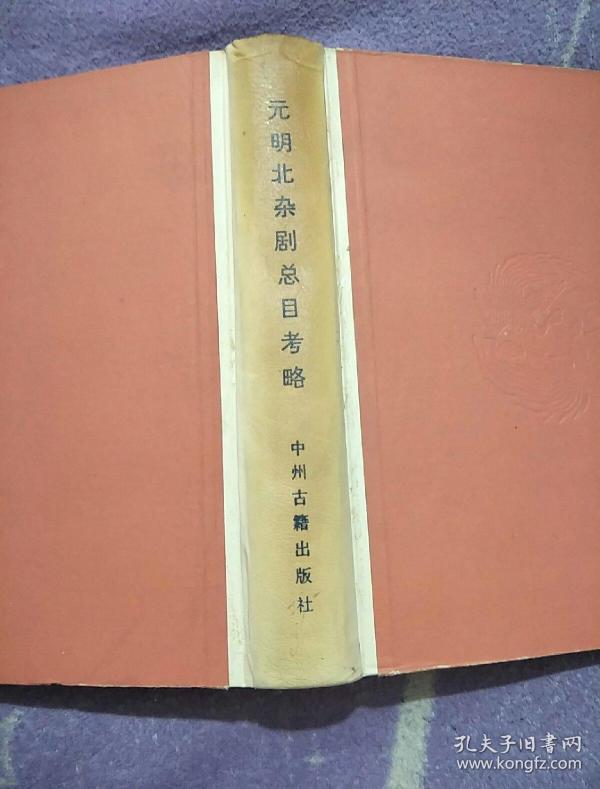 元明北杂剧总目考略
中州古籍出版社
孔夫子旧书网
www.kongfz.com